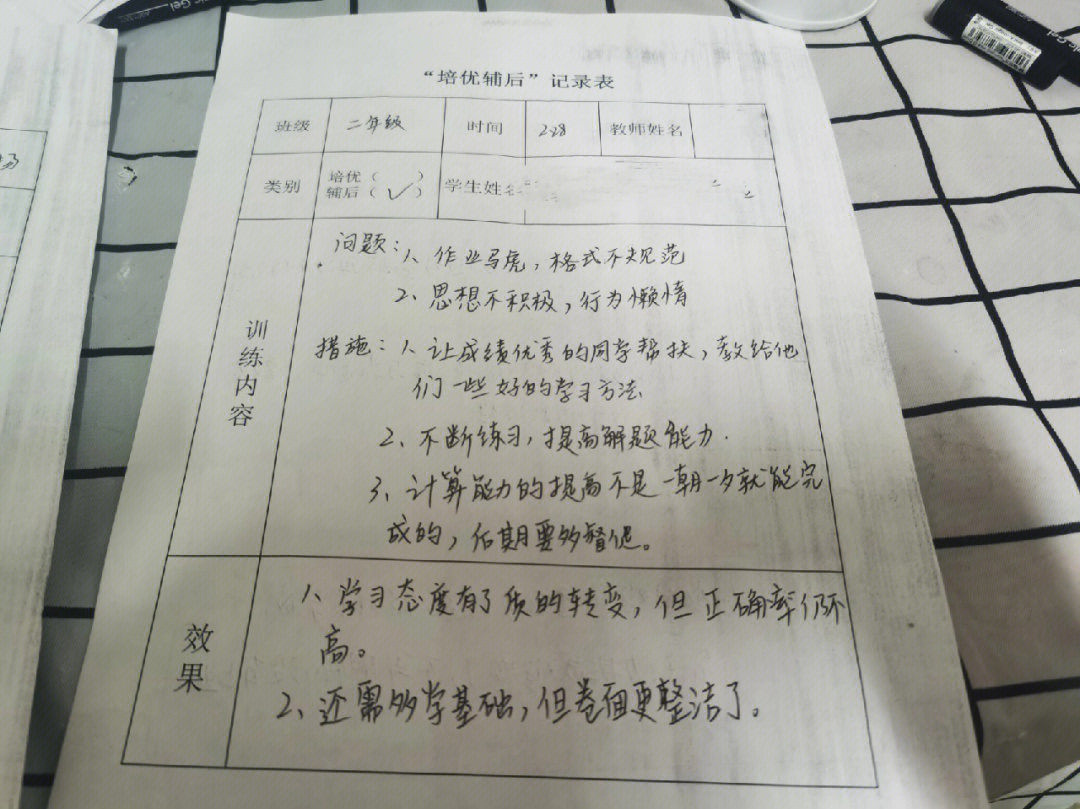 “培优辅后”记录表
班级 二年级 时间 2.28 教师姓名
类别 培优（ ） 学生姓名
辅后（✓）
训练内容
问题：1、作业马虎，格式不规范
2、思想不积极，行为懒惰
措施：1、让成绩优秀的同学帮扶，教给他
们一些好的学习方法
2、不断练习，提高解题能力.
3、计算能力的提高不是一朝一夕就能完
成的，后期要多督促。
效果
1、学习态度有了质的转变，但正确率仍不
高。
2、还需多学基础，但卷面更整洁了。